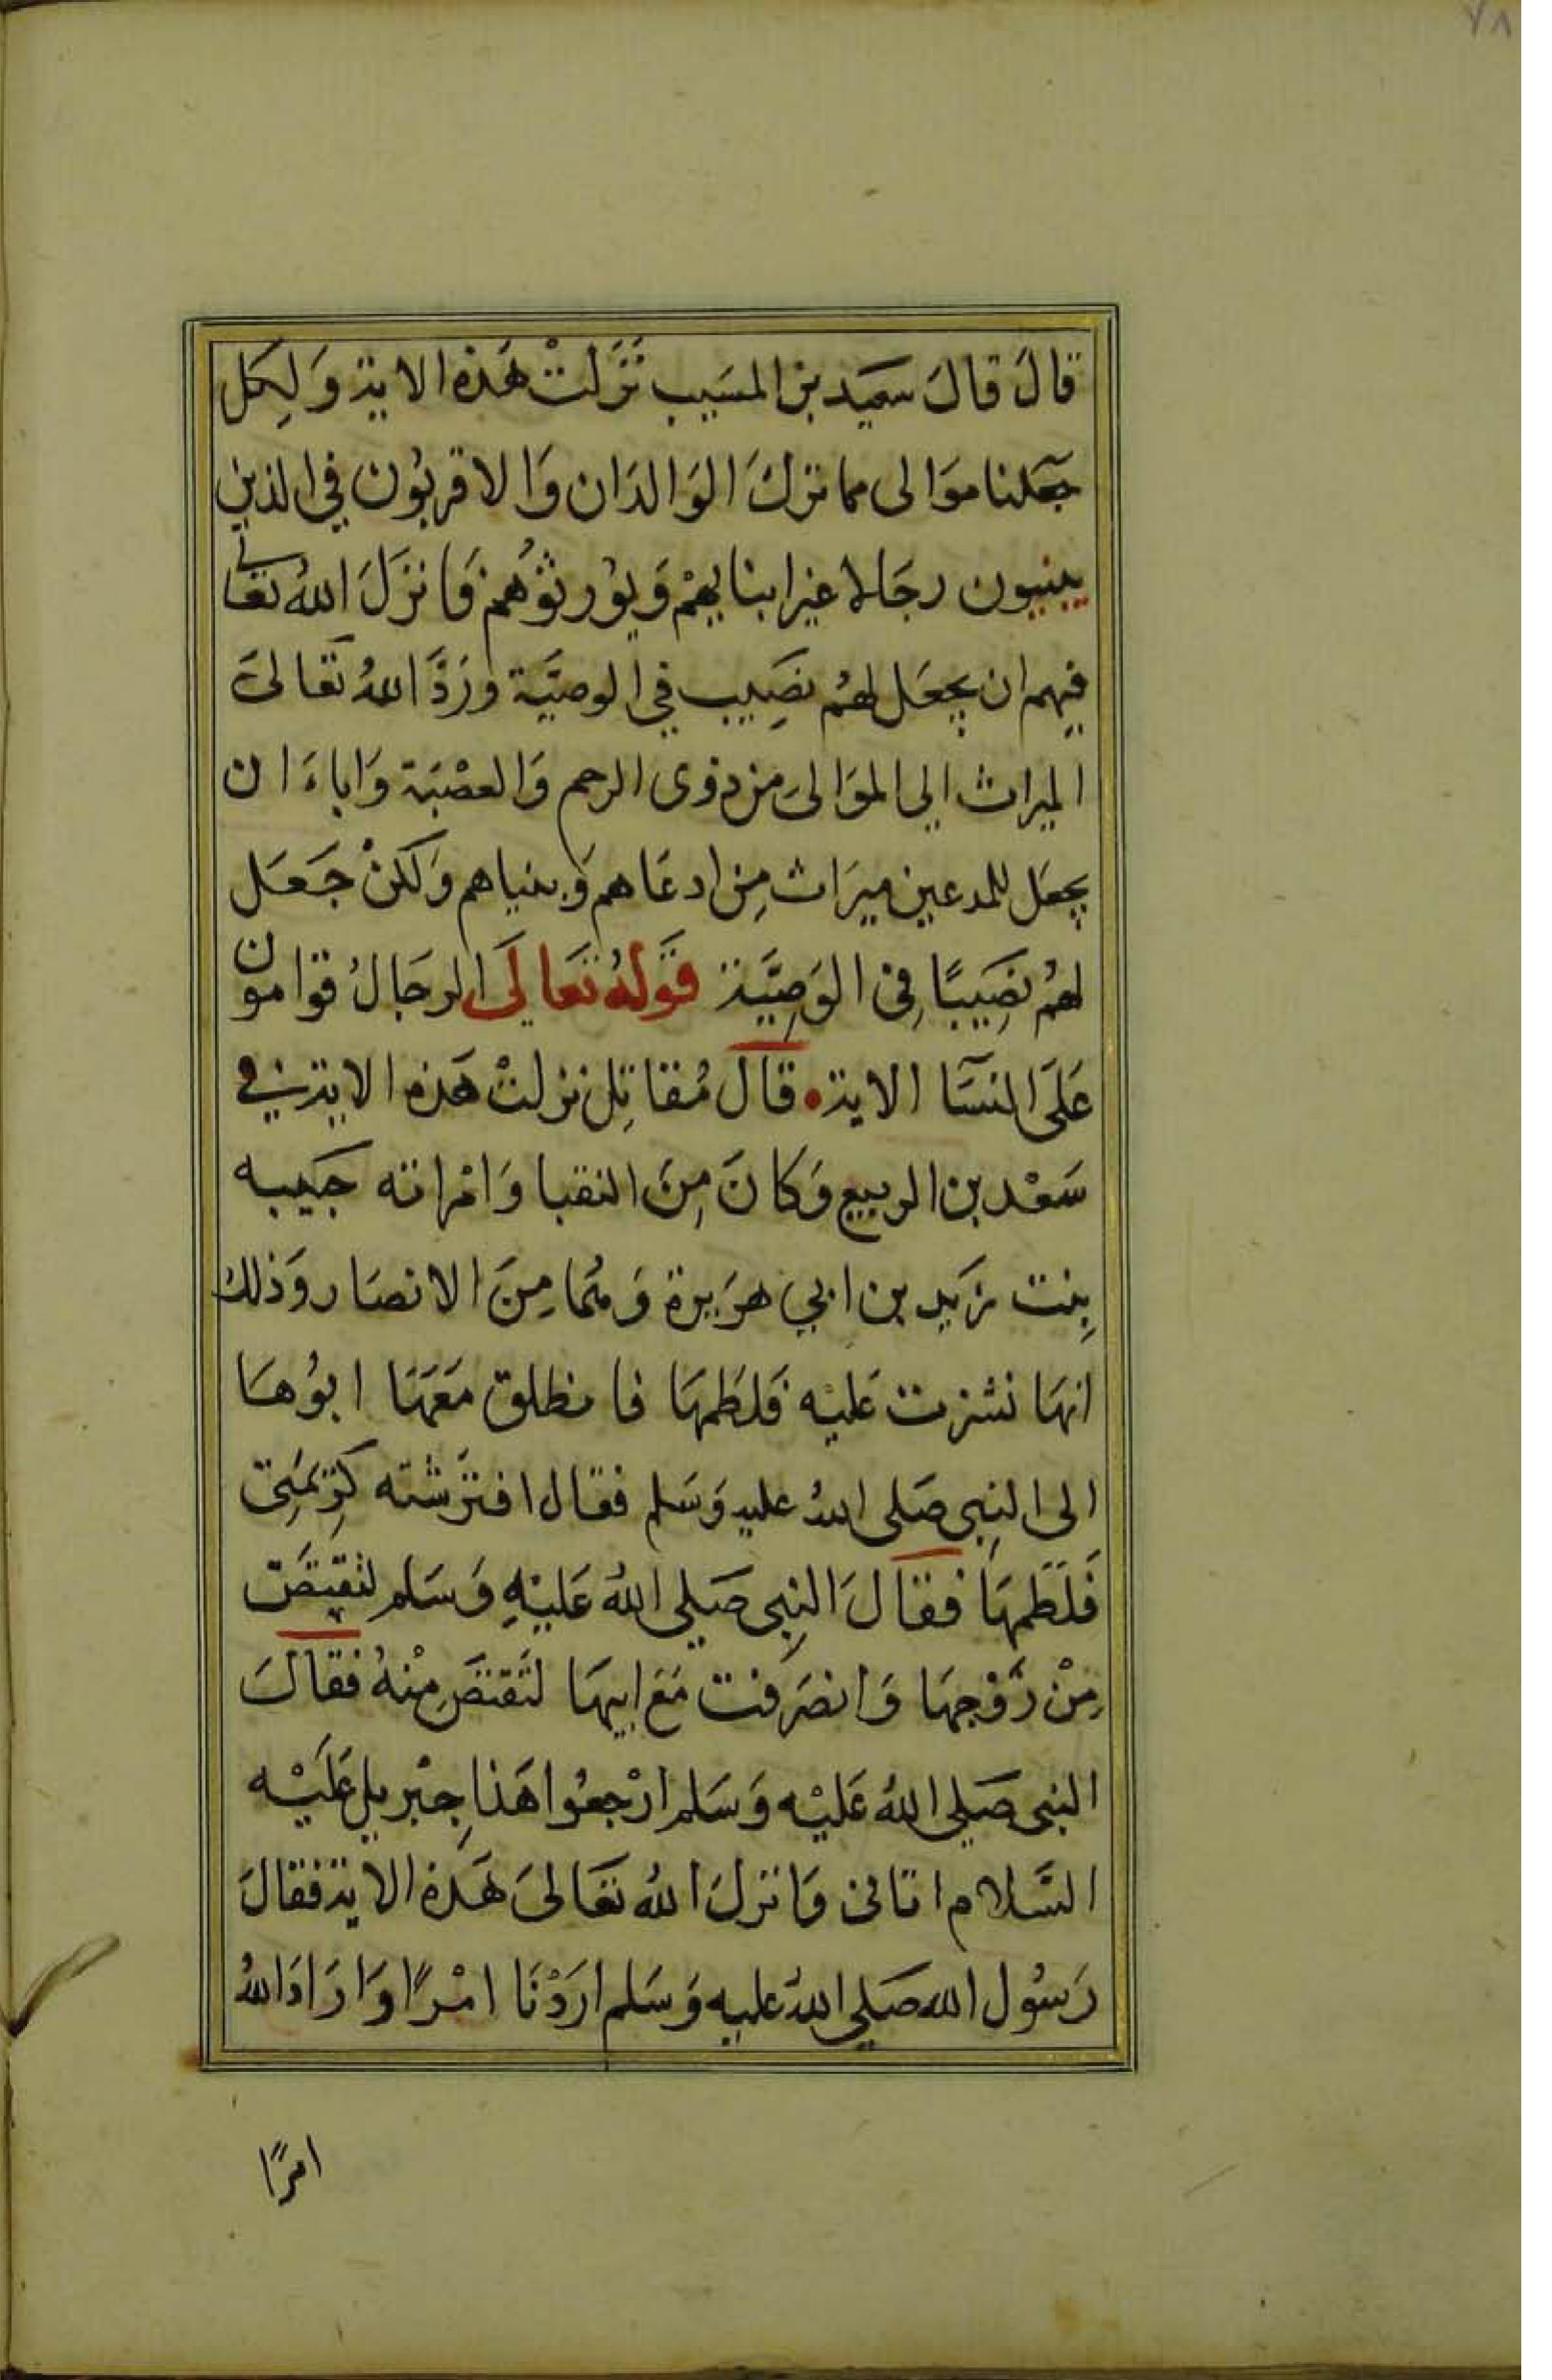 ٧٨
قالَ قالَ سَعيد بن المسَيب نَزَلتْ هَذه الاية وَلِكل
جَعَلنا موَالى مما ترَكَ الوَالدَان وَالاقربُون في الذين
يتبنون رجَالا غير ابنايهمْ وَيوُرثوُهُم فَانزَلَ اللهُ تعَالى
فيهم ان يجعَل لهُم نصَيب في الوصيَّة وَرَدَّ اللهُ تعَالىَ
الميراث الى الموَالىَ من ذوى الرحم وَالعصْبَة وَاباءَ ان
يجعَل للمدعين ميرَاث مِن ادعَاهم وَبنياهم وَلكنْ جَعَل
لهُم نصَيبًا فِى الوَصِيَّة قَولهُ تعَالىَ الرجَالُ قوامون
عَلىَ النسَآ الاية قالَ مُقاتِل نزلتْ هَذه الاية في
سَعْد بن الربيع وَكانَ مِنَ النقبا وَامْراته حَبيبه
بِنت زيَد بن ابي هرَيرة وَهُمَا مِنَ الانصَار وَذلكَ
انهَا نشزت عَليه فَلطَمهَا فانطلق مَعَهَا ابوُهَا
الى النبِى صَلى اللهُ عليه وَسَلم فقال افترَشته كَرِيمَتِى
فَلَطَمهَا فقَالَ النبِى صَلي اللهُ عَليْهِ وَسَلم لتقتصَّ
مِنْ زَوْجهَا وَانصَرفت مَعَ ابيهَا لتَقتصَّ مِنْهُ فقالَ
النبى صَلي اللهُ عَليْه وَسَلم ارْجعُوا هَذا جِبْريل عَلَيْه
السَّلام اتانى وَانزلَ اللهُ تعَالىَ هَذه الاية فقالَ
رَسُول الله صَلي اللهُ عليه وَسَلم ارَدْنَا امْرًا وَارَادَ اللهُ
امرًا